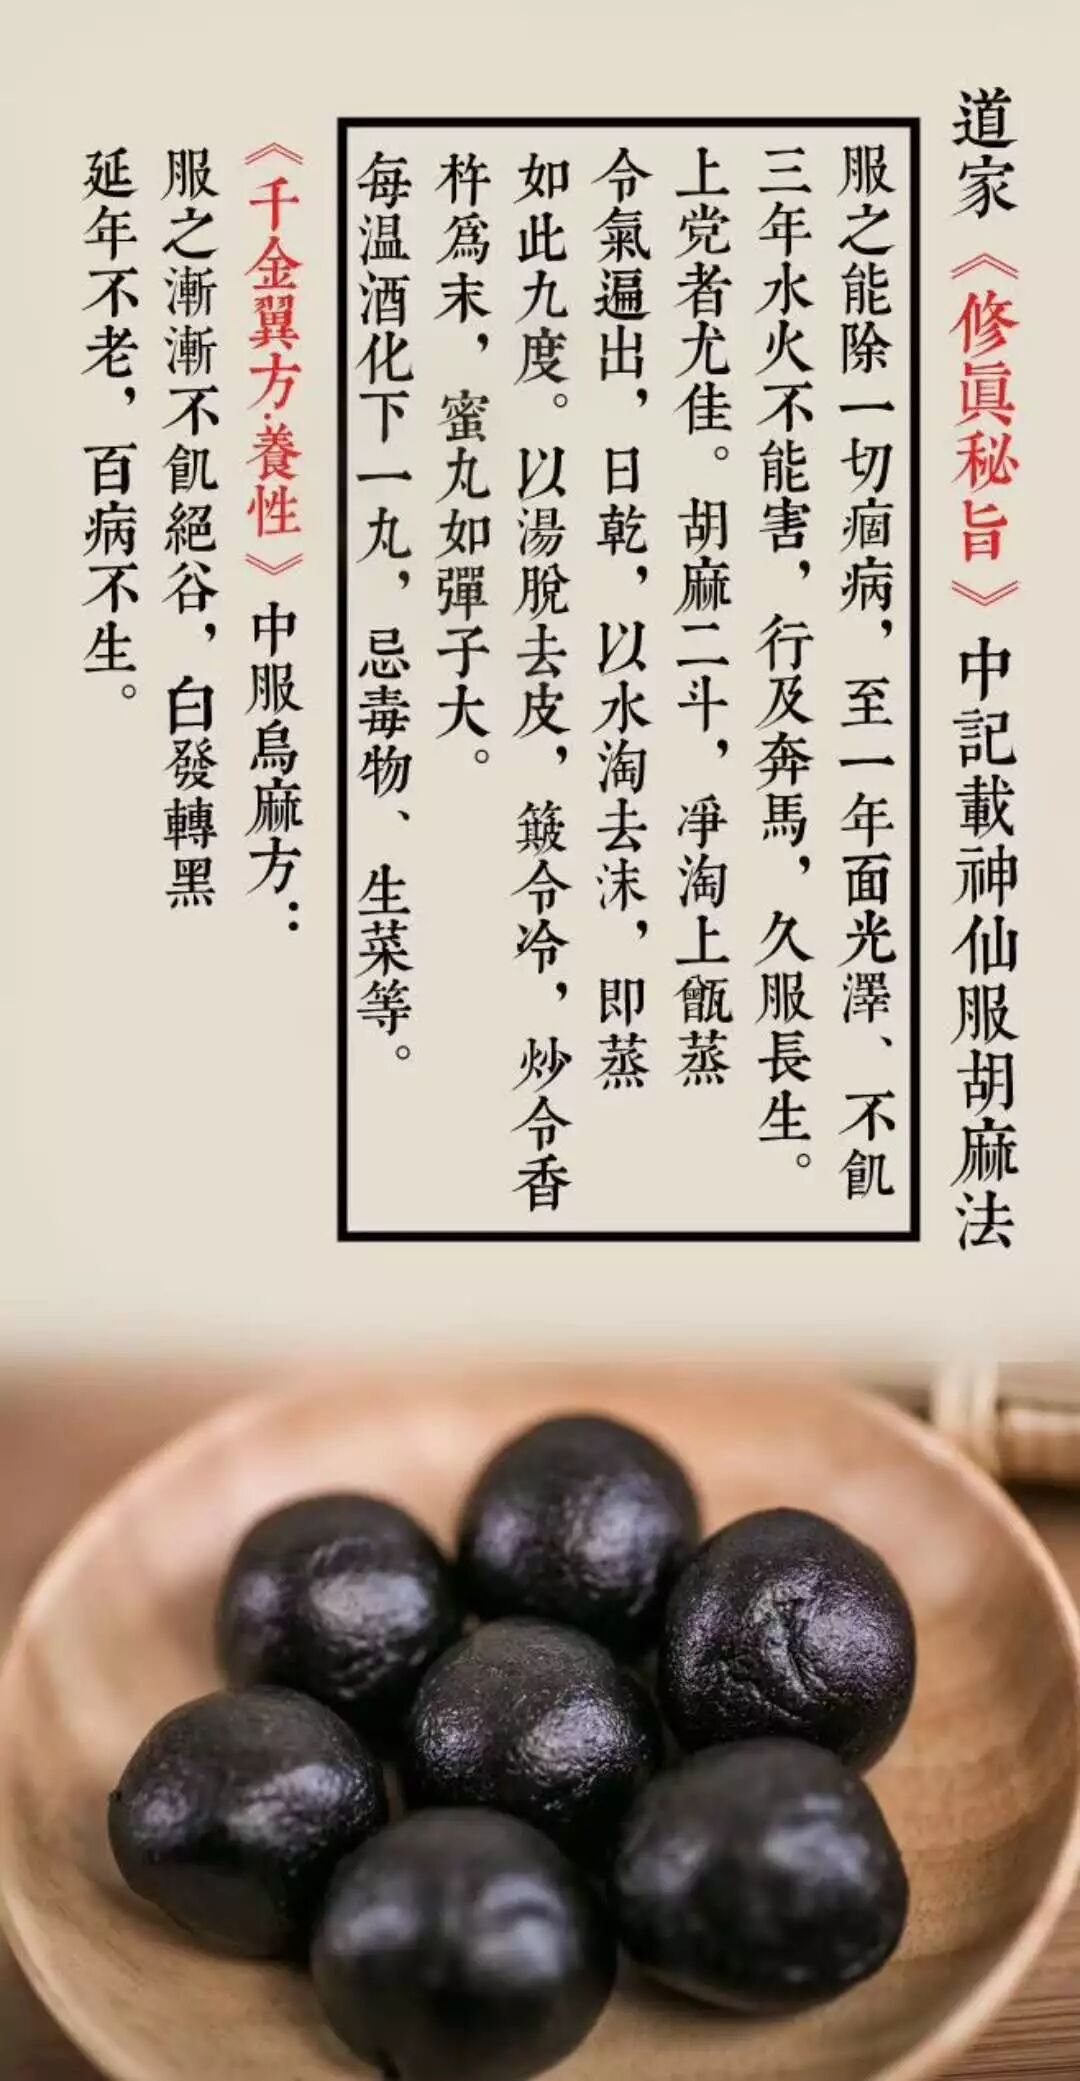 道家《修眞秘旨》中記載神仙服胡麻法
服之能除一切痼病，至一年面光澤、不飢
三年水火不能害，行及奔馬，久服長生。
上党者尤佳。胡麻二斗，凈淘上甑蒸
令氣遍出，日乾，以水淘去沫，即蒸
如此九度。以湯脫去皮，簸令冷，炒令香
杵為末，蜜丸如彈子大。
每温酒化下一丸，忌毒物、生菜等。
《千金翼方·養性》中服烏麻方：
服之漸漸不飢絕谷，白發轉黑
延年不老，百病不生。